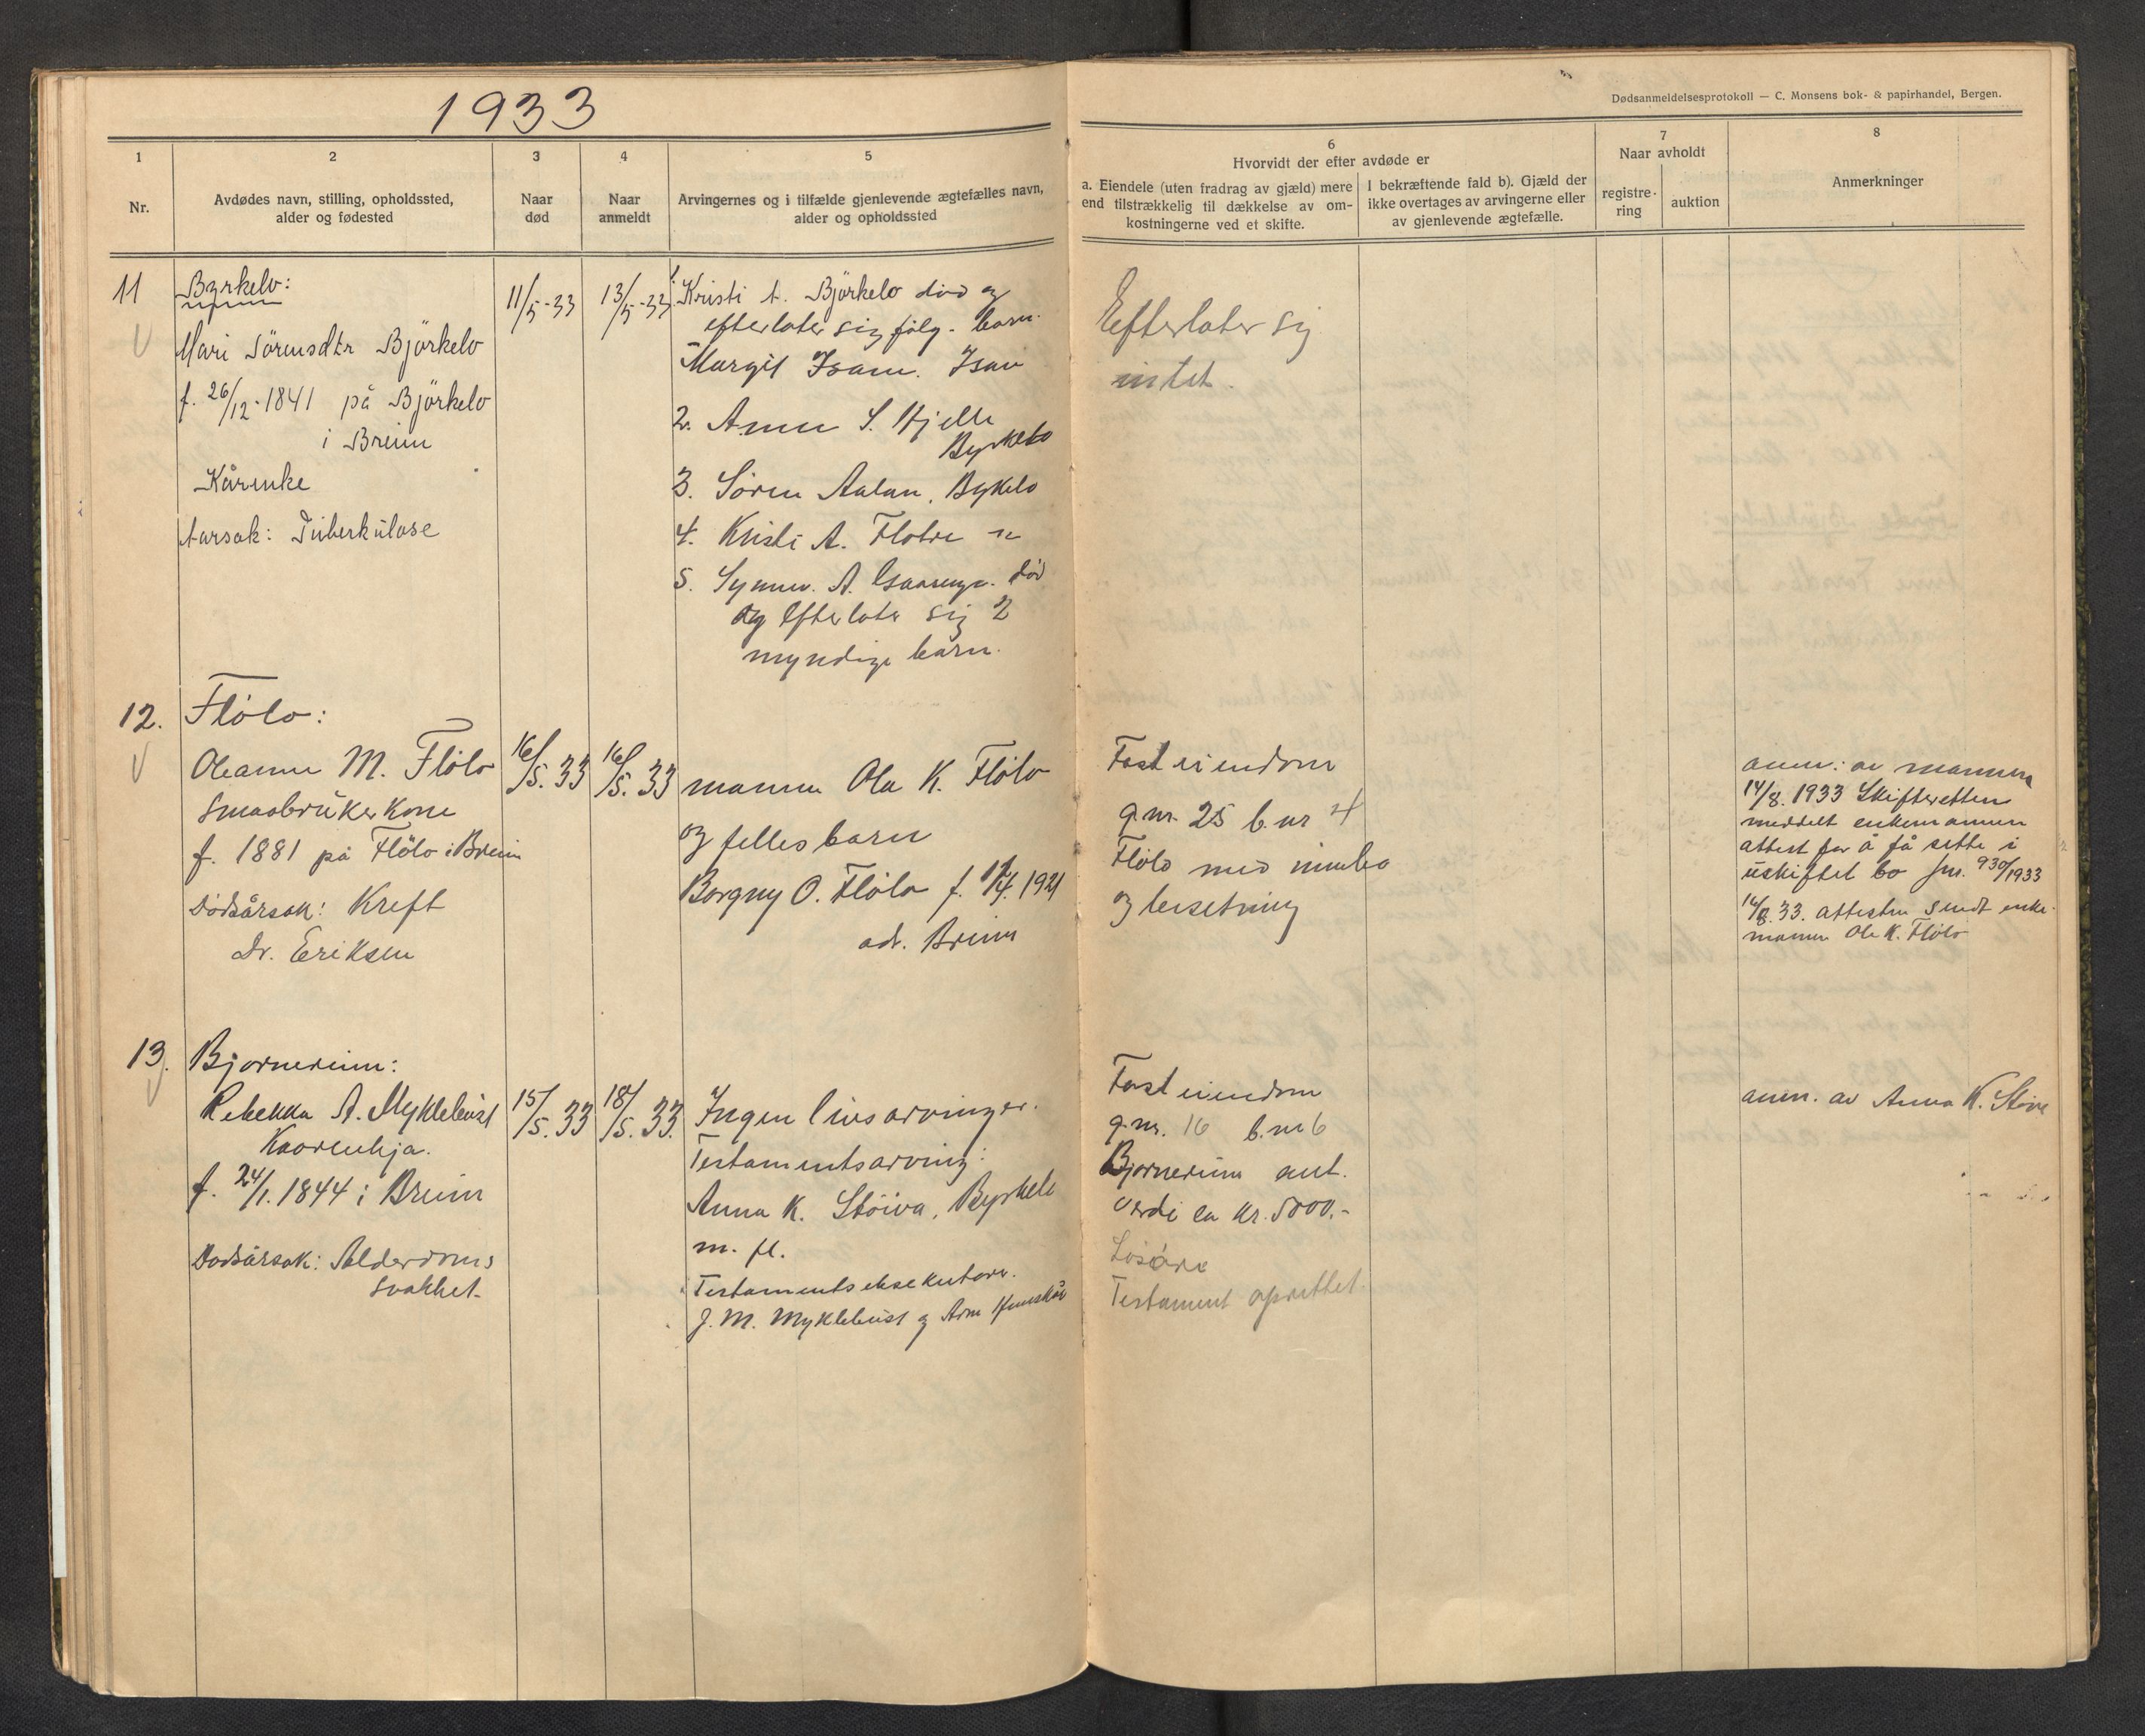 1933
Dødsanmeldelsesprotokoll — C. Monsens bok- & papirhandel, Bergen.
1
2
3
4
5
6
7
8
Nr.
Avdødes navn, stilling, opholdssted,
alder og fødested
Naar
død
Naar
anmeldt
Arvingernes og i tilfælde gjenlevende ægtefælles navn,
alder og opholdssted
Hvorvidt der efter avdøde er
a. Eiendele (uten fradrag av gjæld) mere
end tilstrækkelig til dækkelse av om-
kostningerne ved et skifte.
I bekræftende fald b). Gjæld der
ikke overtages av arvingerne eller
av gjenlevende ægtefælle.
Naar avholdt
registre-
ring
auktion
Anmerkninger
11
Byrkelo:
Mari Sörensdtr Björkelo
f. 26/12-1841 på Björkelo
i Breim
Kårenke
Aarsak: Tuberkulose
11/5-33
13/5-33
1. Kristi A. Björkelo död og
efterlater sig fölg. barn.
Margit Isane. Isan
2. Anne S. Hjelle
Byrkelo
3. Sören Aalan, Bykelo
4. Kristi A. Flotre
5. Synnev. A. död
og efterlater sig 2
myndige barn.
Efterlater sig
intet.
12.
Flölo:
Oleanne M. Flölo
Smaabruker kone
f. 1881 på Flölo i Breim
Dödsårsak: Kreft
Dr. Eriksen
16/5. 33
16/5. 33
mannen Ola K. Flölo
og felles barn
Borgny O. Flölo f. /4. 1921
adr. Breim
Fast eiendom
g.nr. 25 b.nr 4
Flölo med innbo
og besetning
anm: av mannen
14/8. 1933 Skifteretten
meddelt enkemannen
attest for å få sitte i
uskiftet bo jnr. 930/1933
14/8. 33. attesten sendt enke-
mannen Ole K. Flölo
13.
Bjornereim:
Rebekka A. Myklebust
Kaarenkja.
f. 24/1. 1844 i Breim
Dødsårsak: Alderdoms
svakhet.
15/5. 33
18/5. 33.
Ingen livsarvinger.
Testamentsarving:
Anna K. Stöiva, Byrkelo
m. fl.
Testamentseksekutorer.
J. M. Myklebust og Arne
Fast eiendom
g.nr. 16 b.nr 6
Bjornereim ant.
verdi ca kr. 5000.-
Lösöre
Testament oprettet.
anm. av Anna K. Stöve